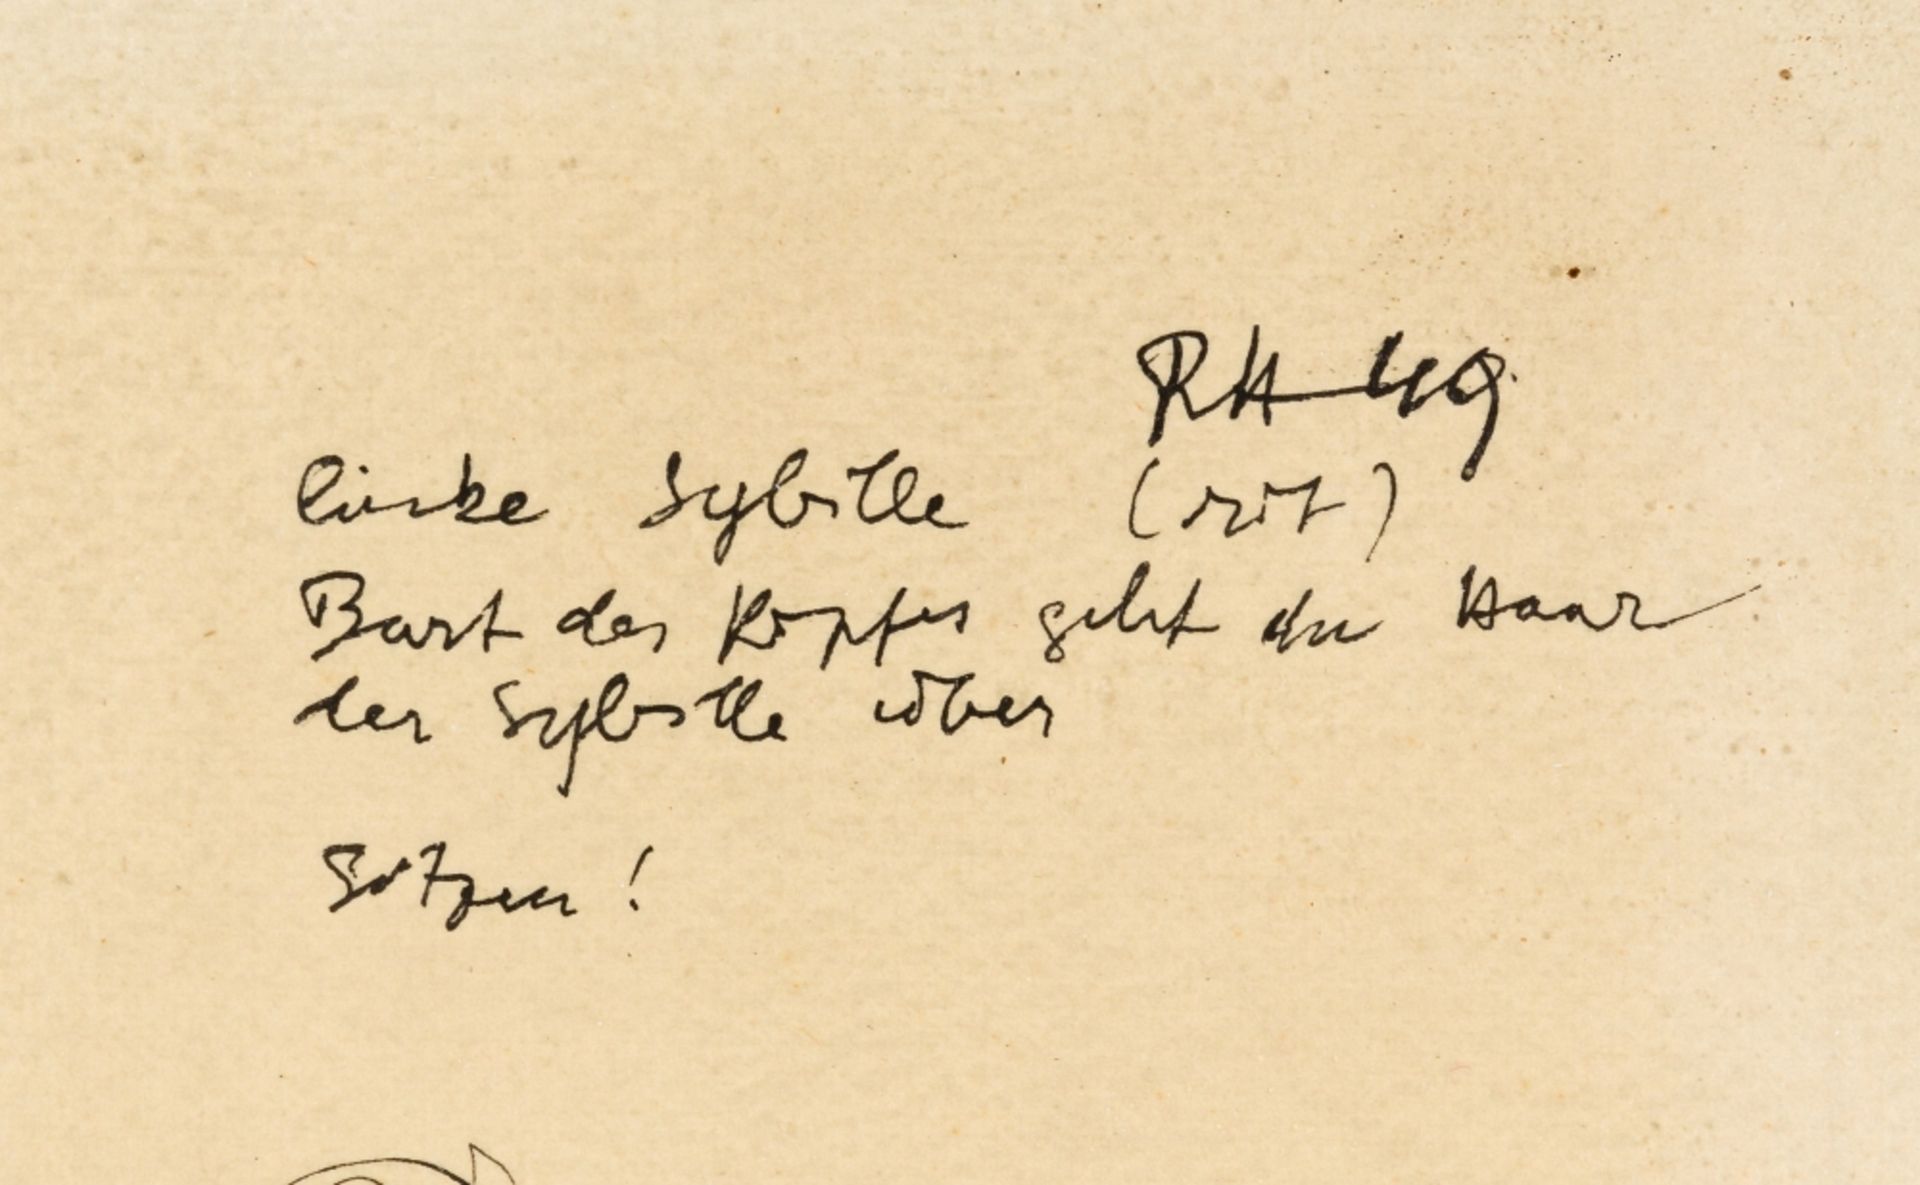 RH 49
linke Sybille (mit)
Bart des Kopfes geht in Haar
der Sybille über